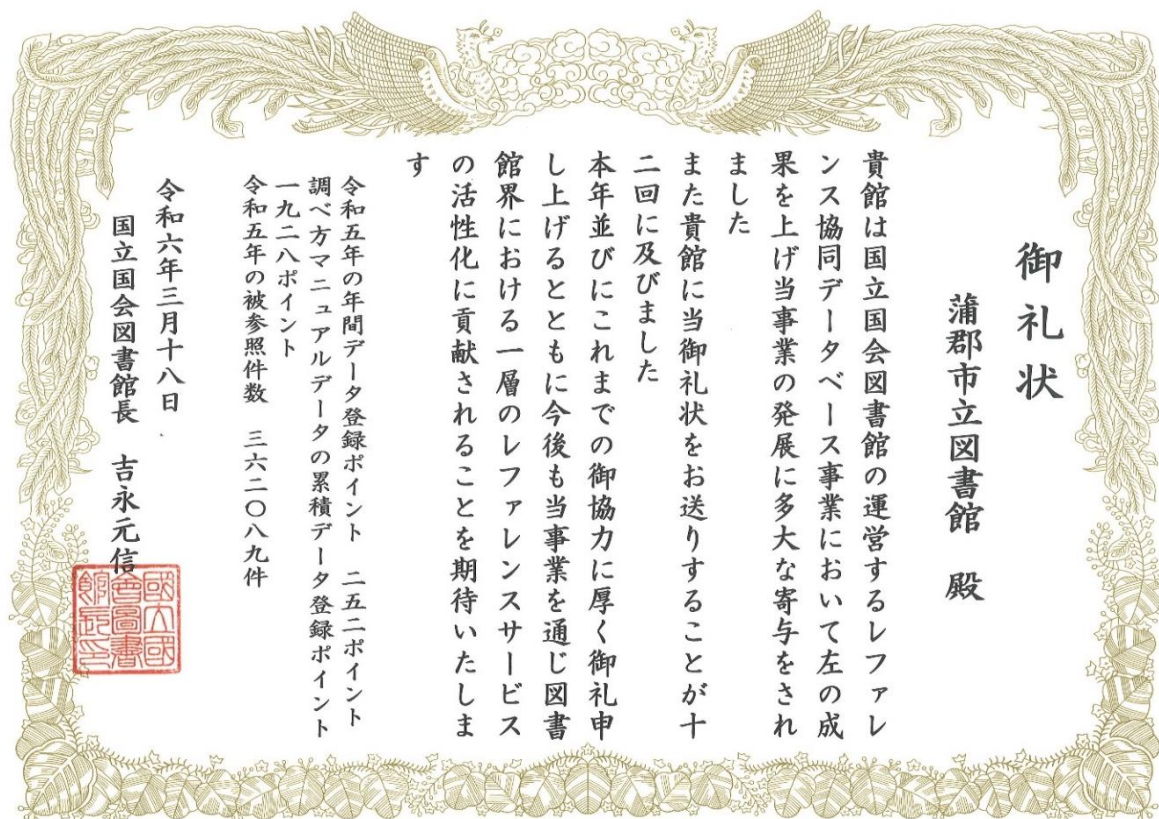 御礼状
蒲郡市立図書館　殿
貴館は国立国会図書館の運営するレファレ
ンス協同データベース事業において左の成
果を上げ当事業の発展に多大な寄与をされ
ました
また貴館に当御礼状をお送りすることが十
二回に及びました
本年並びにこれまでの御協力に厚く御礼申
し上げるとともに今後も当事業を通じ図書
館界における一層のレファレンスサービス
の活性化に貢献されることを期待いたしま
す
令和五年の年間データ登録ポイント　二五二ポイント
調べ方マニュアルデータの累積データ登録ポイント
一九二八ポイント
令和五年の被参照件数　三六二〇八九件
令和六年三月十八日
国立国会図書館長　吉永元信
國立國
會圖書
館長印